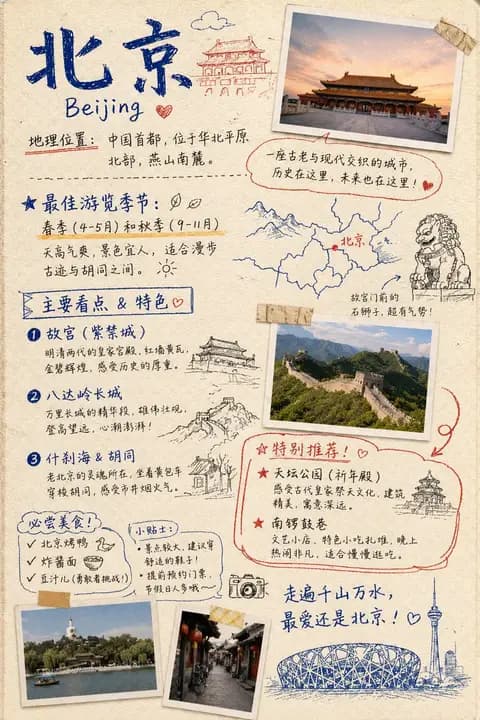 北京
Beijing
地理位置： 中国首都，位于华北平原
北部，燕山南麓。
一座古老与现代交织的城市，
历史在这里，未来也在这里！
★ 最佳游览季节：
春季（4-5月）和秋季（9-11月）
天高气爽，景色宜人，适合漫步
古迹与胡同之间。
北京
故宫门前的
石狮子，超有气势！
主要看点 & 特色
1 故宫（紫禁城）
明清两代的皇家宫殿，红墙黄瓦，
金碧辉煌，感受历史的厚重。
2 八达岭长城
万里长城的精华段，雄伟壮观，
登高望远，心潮澎湃！
3 什刹海 & 胡同
老北京的灵魂所在，坐着黄包车
穿梭胡同，感受市井烟火气。
★ 特别推荐！
★ 天坛公园（祈年殿）
感受古代皇家祭天文化，建筑
精美，寓意深远。
★ 南锣鼓巷
文艺小店、特色小吃扎堆，晚上
热闹非凡，适合慢慢逛吃。
必尝美食！
✓ 北京烤鸭
✓ 炸酱面
✓ 豆汁儿（勇敢者挑战！）
小贴士：
• 景点较大，建议穿
舒适的鞋子！
• 提前预约门票，
节假日人多哦～
走遍千山万水，
最爱还是北京！